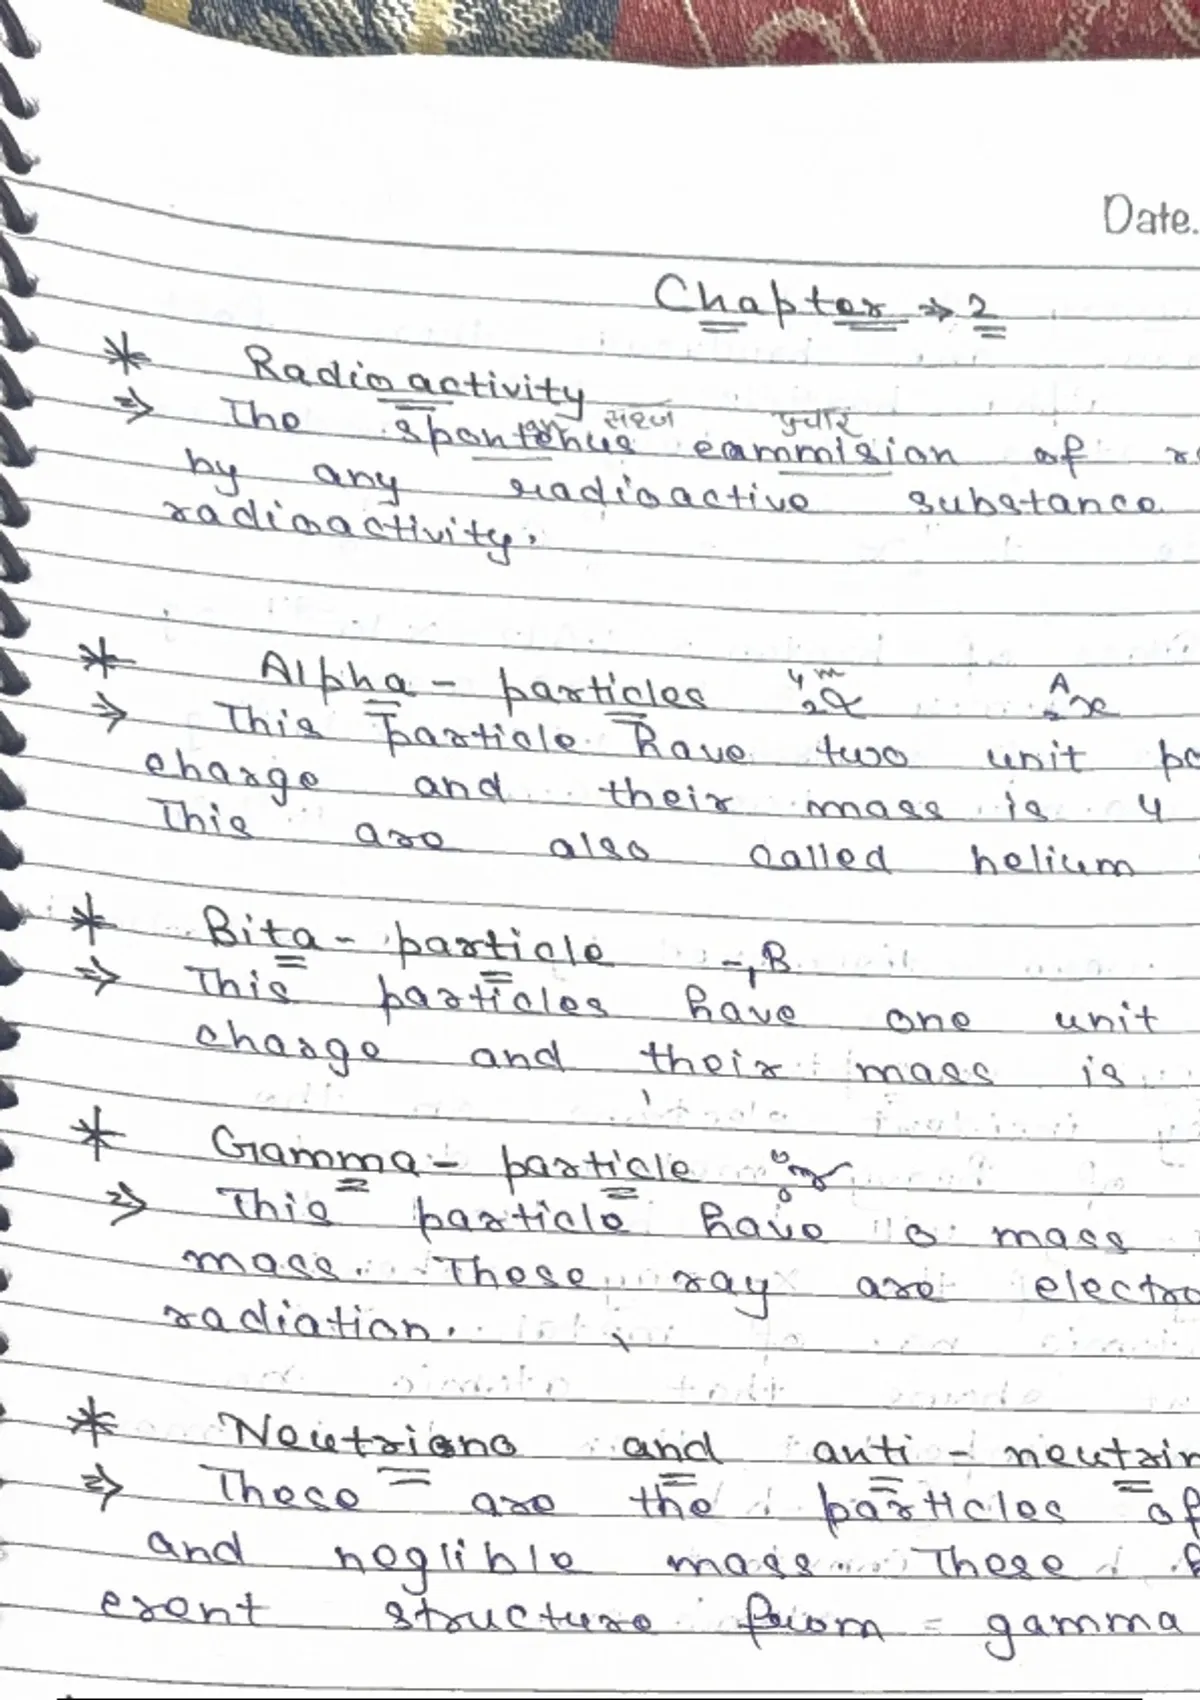 Date.
Chapter ⇒ 2
* Radioactivity
सहज प्रचार
⇒ The spontenus eammision of
by any radioactive substance
radioactivity.
* Alpha - particles ⁴₂α ᴬ₂x
⇒ This Particle have two unit po
charge and their mass is 4
This are also called helium
* Bita - particle ₋₁B
⇒ This particles have one unit
charge and their mass is
* Gamma - particle
⇒ This particle have o mass
mass. These ray are electro
radiation.
* Neutriono and anti - neutrin
⇒ These are the particles of
and neglible mass These
erent structure from gamma